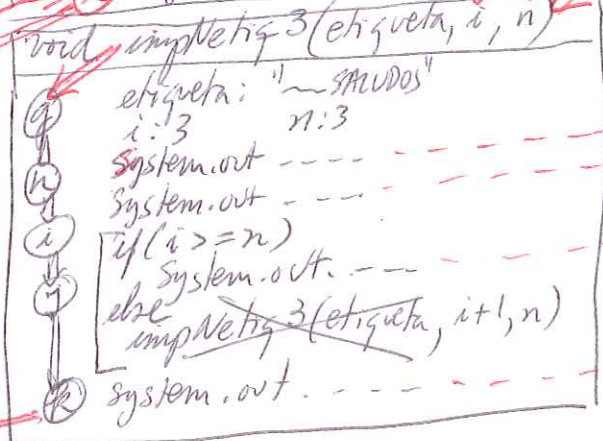 void impNetiq3(etiqueta, i, n)
g etiqueta: "~SALUDOS"
i: 3 n: 3
System.out ----
h System.out ----
i if(i>=n)
System.out. ---
j else
impNetiq3(etiqueta, i+1, n)
k system.out. ----